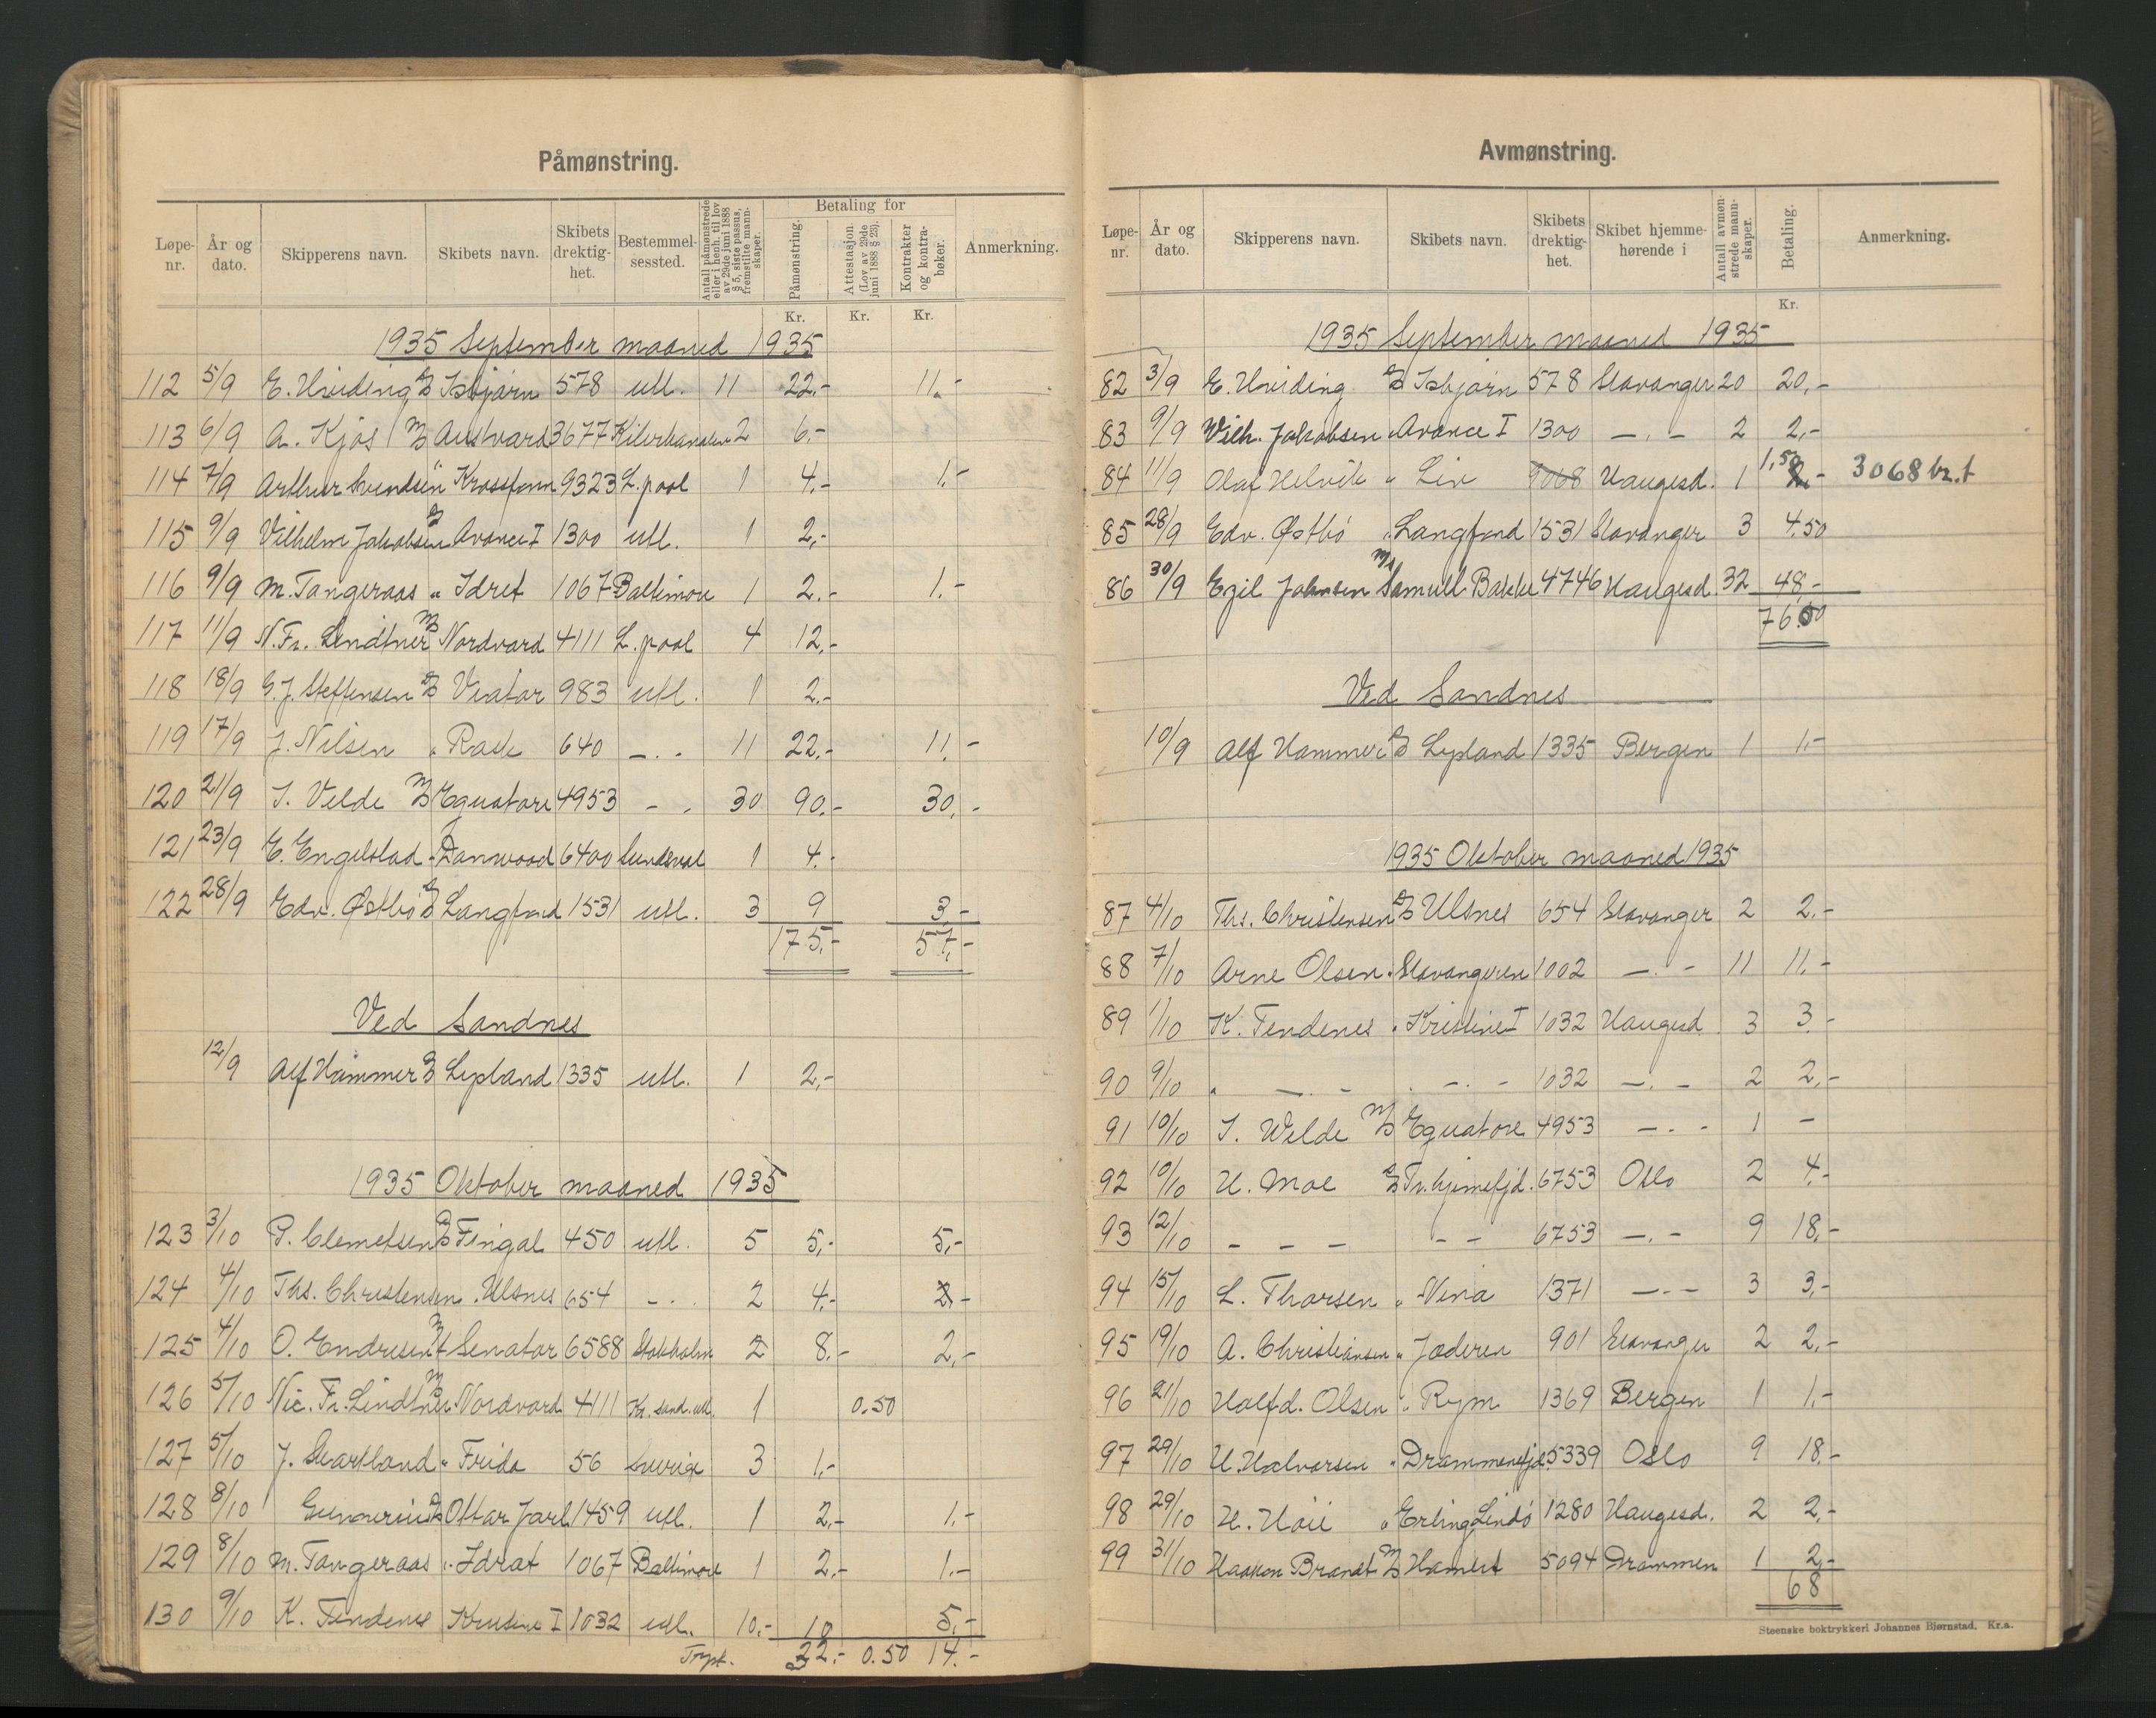 Påmønstring.
Løpe-nr. År og dato. Skipperens navn. Skibets navn. Skibets drektig-het. Bestemmel-sessted. Antall påmønstrede eller i henh. til lov av 29de juni 1888 § 5, siste passus, fremstilte mann-skaper. Betaling for Påmønstring. Attestasjon. (Lov av 29de juni 1888 § 25). Kontrakter og kontra-bøker. Anmerkning.
Kr. Kr. Kr.
1935 September maaned 1935
112 5/9 E. Hviding D/S Isbjørn 578 utl. 11 22,- 11,-
113 6/9 A. Kjøs M/S Austvard 3677 2 6,-
114 7/9 Arthur Svendsen " Krossfonn 9323 L.pool 1 4,- 1,-
115 9/9 Vilhelm Jakobsen D/S Avance I 1300 utl. 1 2,-
116 9/9 M. Tangeraas " Idret 1067 Baltimore 1 2.- 1.-
117 11/9 N. Fr. Lindtner M/S Nordvard 4111 L.pool 4 12,-
118 18/9 G. J. Steffensen D/S Viator 983 utl. 1 2.-
119 17/9 J. Nilsen " Rask 640 -.- 11 22.- 11.-
120 21/9 I. Velde M/S Equatore 4953 - . 30 90.- 30,-
121 23/9 E. Engelstad " Danwood 6400 Sundsval 1 4.-
122 28/9 Edv. Østbö D/S Langfond 1531 utl. 3 9 3,-
175,- 57,-
Ved Sandnes
12/9 Alf Hammer D/S Lysland 1335 utl. 1 2,-
1935 Oktober maaned 1935
123 3/10 P. Clemetsen D/S Fingal 450 utl. 5 5,- 5,-
124 4/10 Ths. Christensen " Ulsnes 654 -.. 2 4.- 2.-
125 4/10 O. Endresen M/t Senator 6588 Stokholm 2 8.- 2,-
126 5/10 Nic. Fr. Lindtner M/S Nordvard 4111 Kr. sand. utl. 1 0.50
127 5/10 J. Svartland " Frida 56 Sverige 3 1,-
128 8/10 Gunnerius D/S Ottar Jarl 1459 utl. 1 2,- 1.-
129 8/10 M. Tangeraas " Idrat 1067 Baltimore 1 2,- 1.-
130 9/10 K. Tendenes Kristine I 1032 utl. 10.- 10 5,-
Trspt. 32.- 0.50 14.-
Avmønstring.
Løpe-nr. År og dato. Skipperens navn. Skibets navn. Skibets drektig-het. Skibet hjemme-hørende i Antall avmøn-strede mann-skaper. Betaling. Anmerkning.
Kr.
1935 September maaned 1935
82 3/9 E. Hviding D/S Isbjørn 578 Stavanger 20 20,-
83 9/9 Vilh. Jakobsen " Avance I 1300 -.- 2 2,-
84 11/9 Olaf Helvik " Liv 9068 Haugesd. 1 1,50 2.- 3068 br.t
85 28/9 Edv. Østbö " Langfond 1531 Stavanger 3 4.50
86 30/9 Egil Johnsen M/S Samuel Bakke 4746 Haugesd. 32 48,-
76.50
Ved Sandnes
10/9 Alf Hammer D/S Lysland 1335 Bergen 1 1.-
1935 Oktober maaned 1935
87 4/10 Ths. Christensen D/S Ulsnes 654 Stavanger 2 2.-
88 7/10 Arne Olsen " Stavangeren 1002 -.- 11 11.-
89 1/10 K. Tendenes " Kristine I 1032 Haugesd 3 3.-
90 9/10 " -.- . -.- 1032 -.- 2 2,-
91 10/10 I. Velde M/S Equatore 4953 -.- 1 -
92 10/10 H. Moe D/S Tr.hjemsfjd. 6753 Oslo 2 4.-
93 12/10 - - - - - 6753 -.- 9 18,-
94 15/10 L. Thorsen " Nina 1371 -.- 3 3,-
95 19/10 A. Christiansen " Jæderen 901 Stavanger 2 2,-
96 21/10 Halfd. Olsen " Rym 1369 Bergen 1 1.-
97 29/10 H. Halvorsen " Drammensfjd. 5339 Oslo 9 18.-
98 29/10 H. " Erling Lindö 1280 Haugesd. 2 2,-
99 31/10 Haakon Brandt M/S 5094 Drammen 1 2,-
68
Steenske boktrykkeri Johannes Bjørnstad. Kr.a.